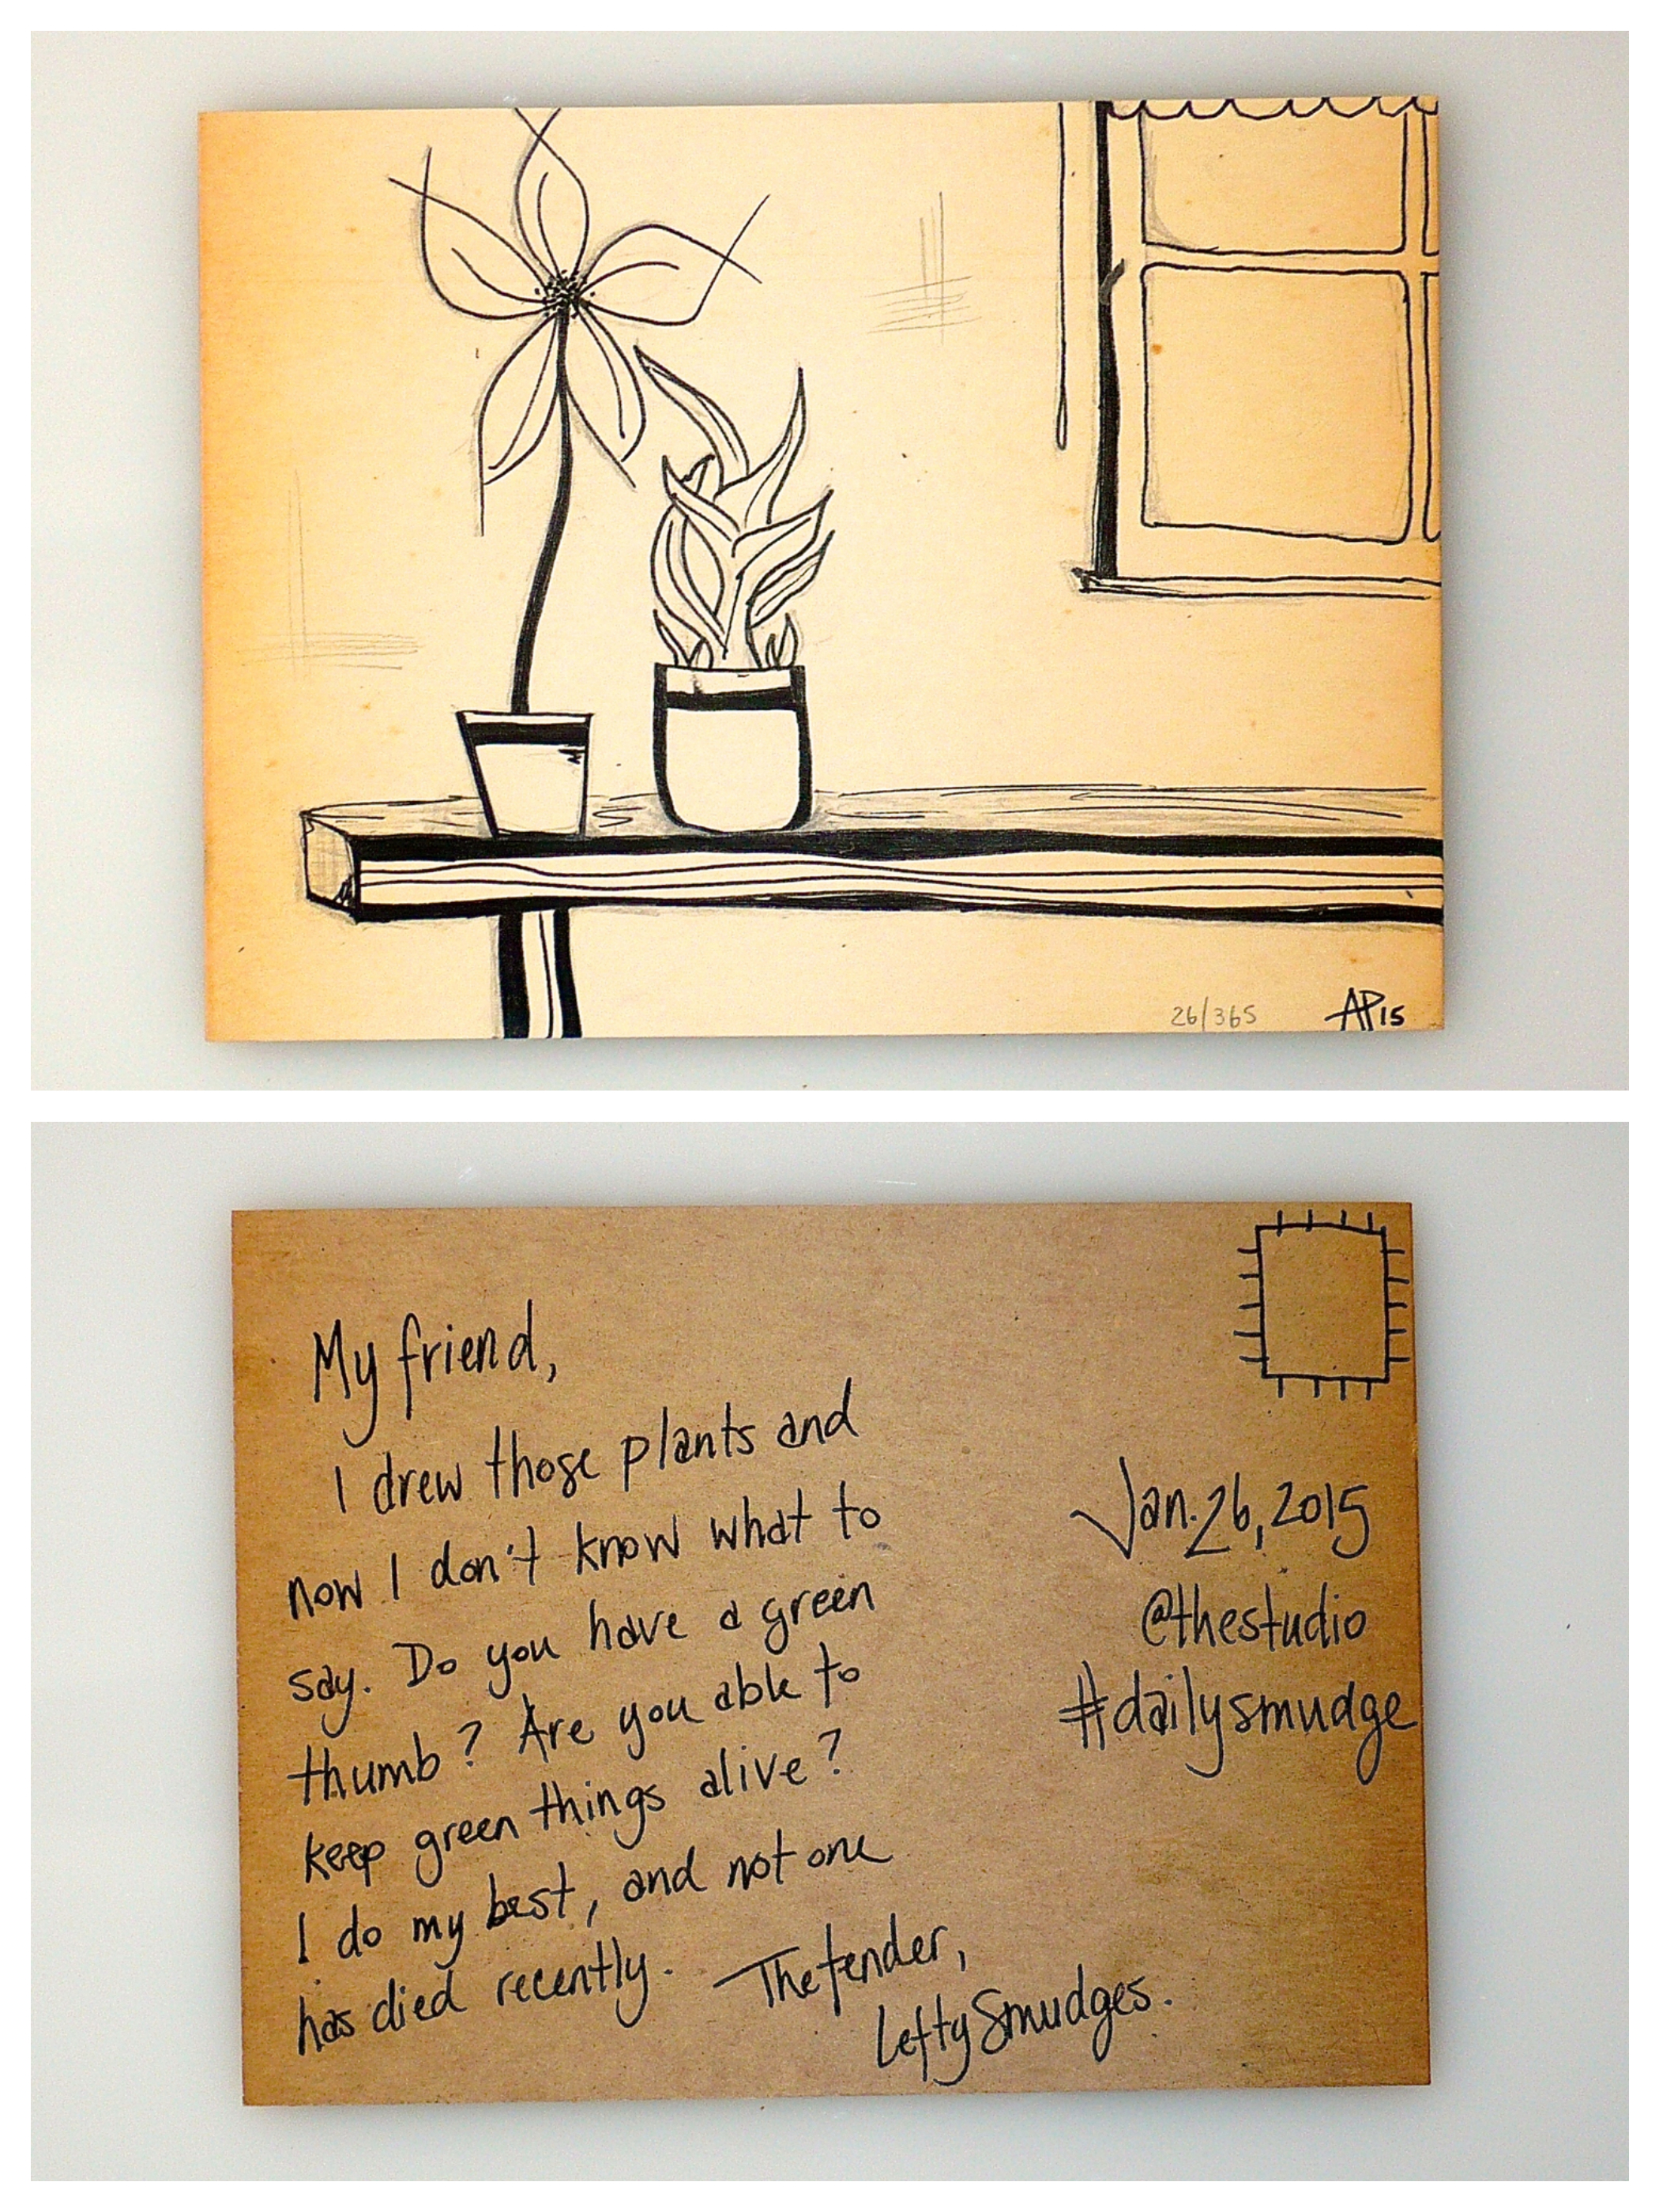 26/365
AP15
My friend,
I drew those plants and
now I don't know what to
say. Do you have a green
thumb? Are you able to
keep green things alive?
I do my best, and not one
has died recently. The tender,
Lefty Smudges.
Jan. 26, 2015
@thestudio
#dailysmudge